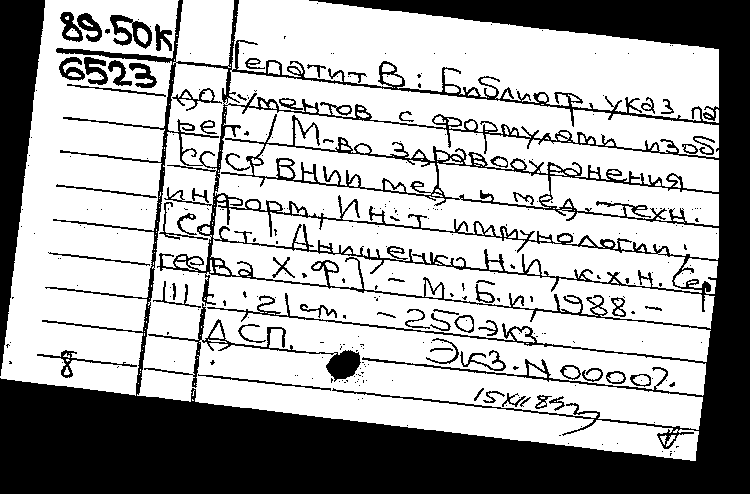 89-50к
6523
Гепатит В: Библиогр. указ. па
документов с формулами изоб.
рет. / М-во здравоохранения
СССР, ВНИИ мед. и мед.-техн.
информ., Ин-т иммунологии;
[Сост.: Анищенко Н.И., к.х.н. Сер
геева Х.Ф.]. - М.: Б.и; 1988. -
111 с.; 21 см. - 250 экз.
ДСП.
Экз. N 00007.
8
15 XII 89